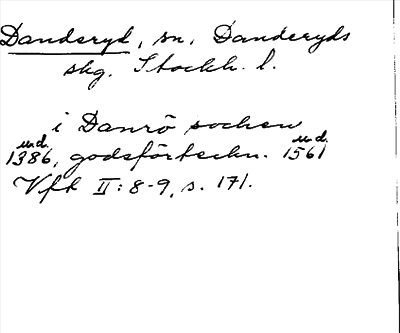 Danderyd, sn, Danderyds
skg. Stockh. l.
i Danrö sochen
u.d. u.d.
1386, godsförteckn. 1561
Vfk II: 8-9, s. 171.